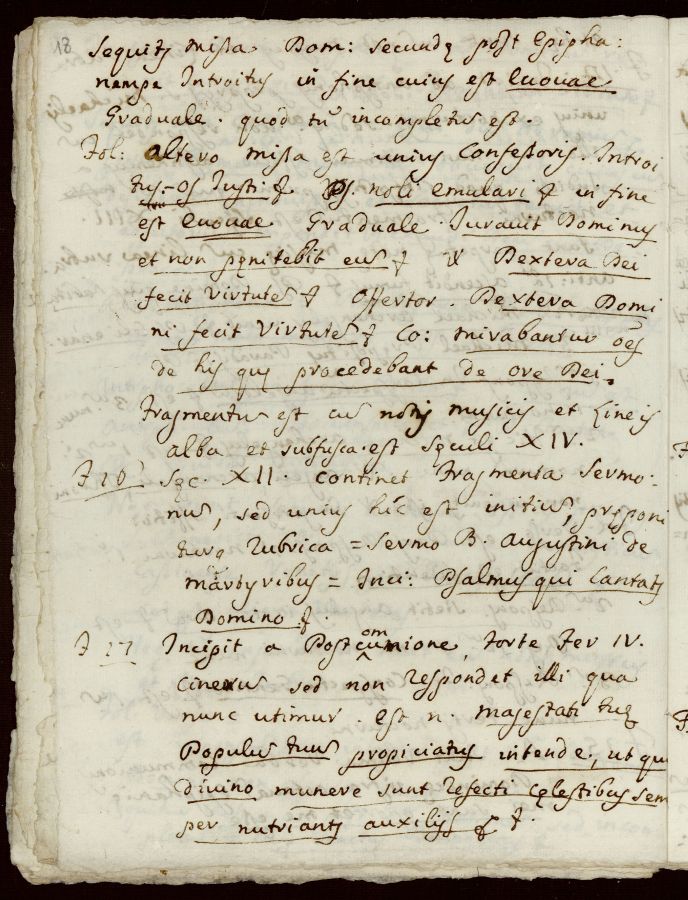 18
Sequitʒ missa Dom: secundę post Epipha:
niampe Introitus in fine cuius est Euouae
Graduale. quod tñ incompletus est.
Fol: altero missa est unius Confessoris. Introi
tus:- Os Iusti: & Ps. noli emulari & in fine
est Euouae Graduale Iurauit Dominus
et non pęnitebit eum & V Dextera Dei
fecit Virtutem & Offertor. Dextera Domi
ni fecit Virtutem & Co: mirabantur oēs
de his quę procedebant de ore Dei.
Fragmentum est cum notis musicis et Lineis
alba et subfusca. est Sęculi XIV.
F 10 Sęc. XII. continet Fragmenta Sermo-
num, sed unius hic est initium, pręponi
turq Rubrica = Sermo B. Augustini de
martyribus = Inci: Psalmus qui Cantatʒ
Domino &.
F 11 Incipit a Postcomunione, Forte Fer IV.
Cinerum sed non respondet illi qua
nunc utimur. est n. majestati tuę
Populus tuus propiciatus intende, ut qui
divino munere sunt refecti cęlestibus sem
per nutriantʒ auxilijs & &.